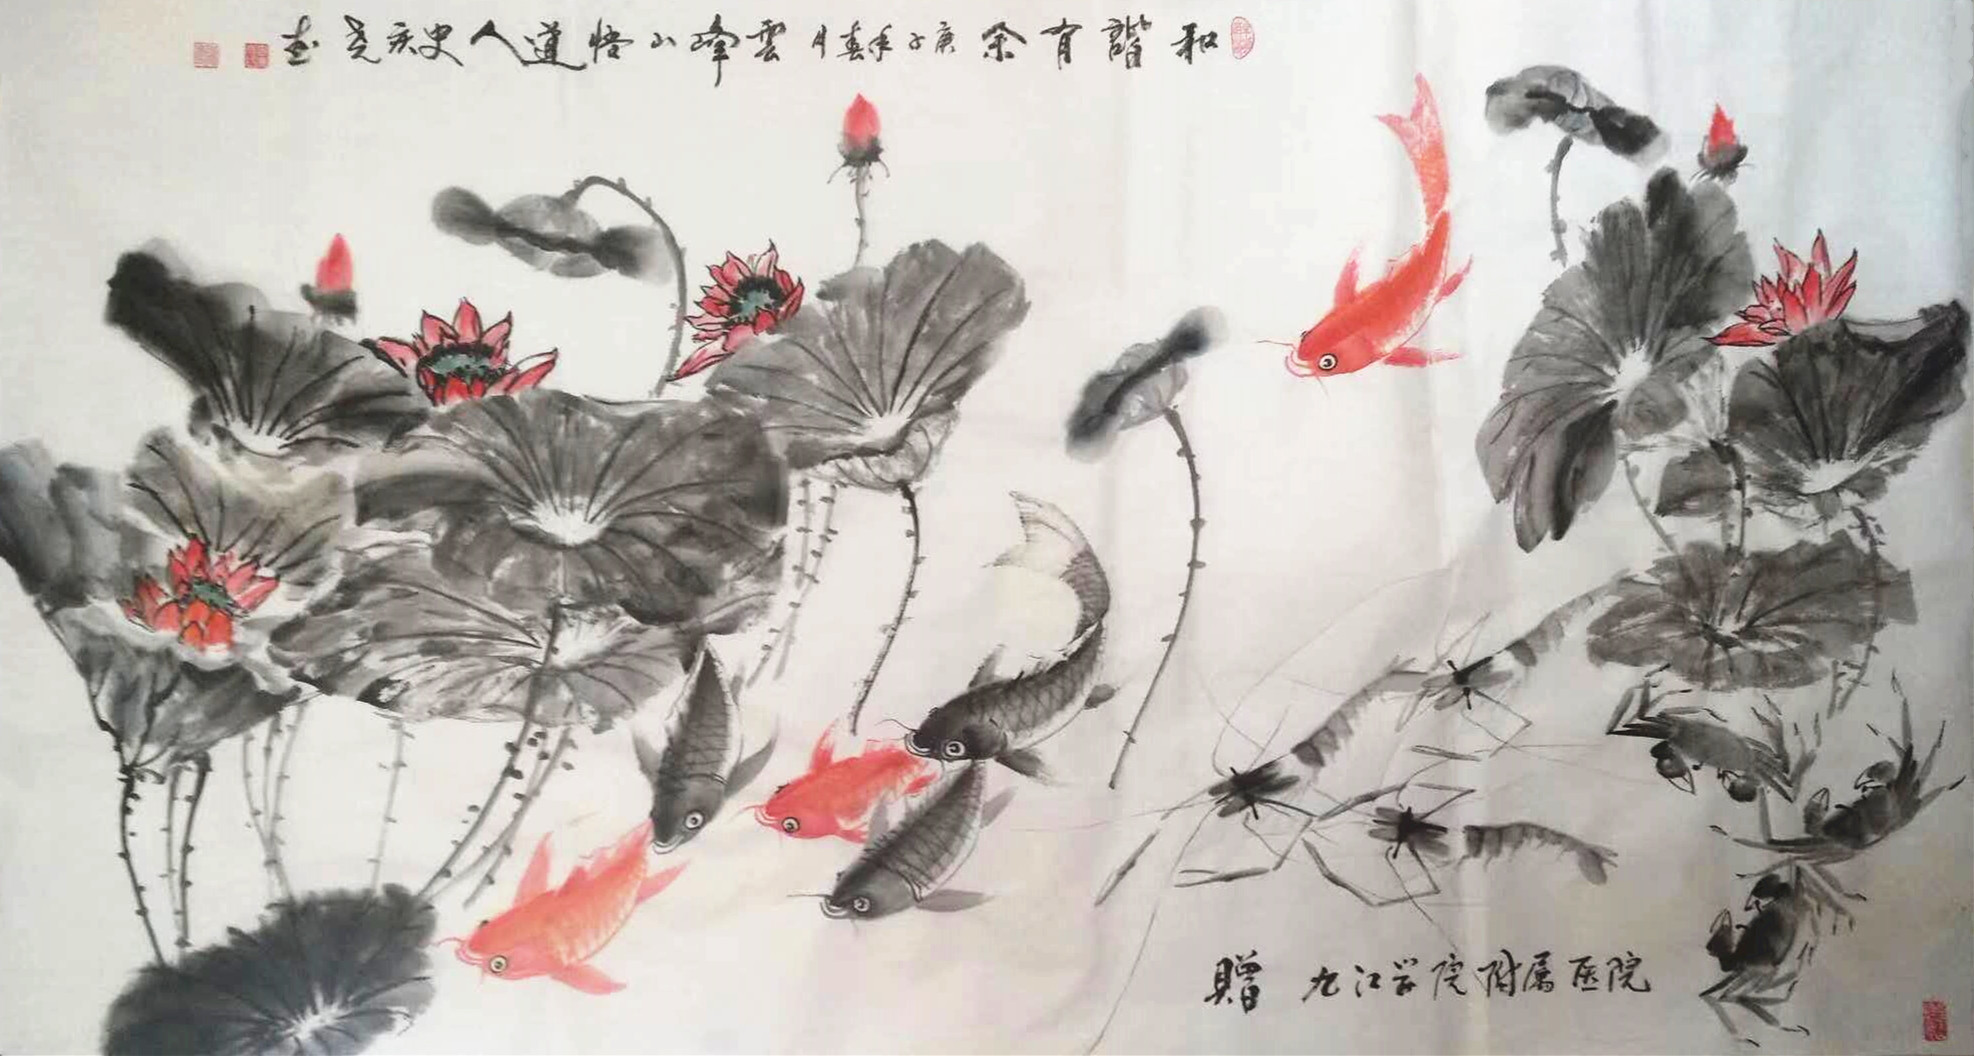 和諧有余 庚子年春月 雲峰山悟道人史庆尧画
贈 九江学院附属医院